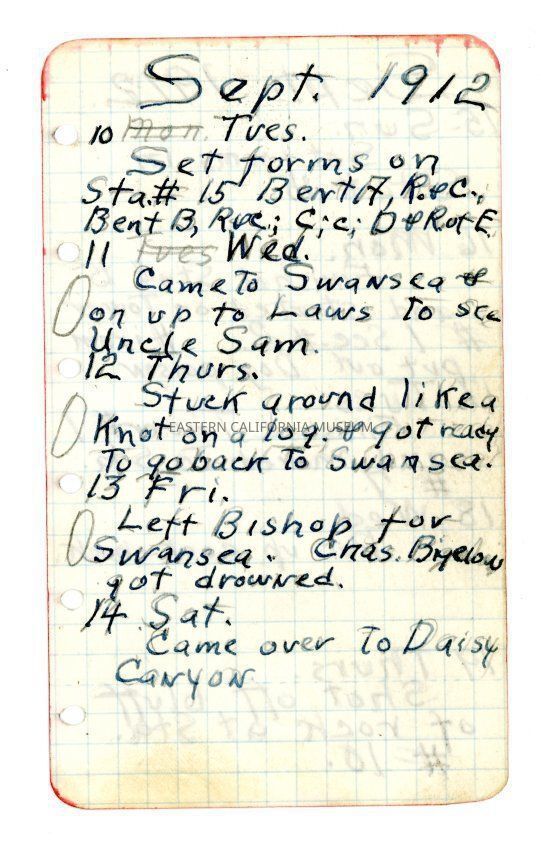 Sept. 1912
10 Mon. Tues.
Set forms on
Sta.# 15 Bent A, R.&C.,
Bent B, R&C.; C; c; D & R of E.
11 Tues Wed.
Came To Swansea &
on up to Laws To see
Uncle Sam.
12 Thurs.
Stuck around like a
Knot on a log. & got ready
To go back To Swansea.
EASTERN CALIFORNIA MUSEUM
13 Fri.
Left Bishop for
Swansea. Chas. Bigelow
got drowned.
14 Sat.
Came over to Daisy
Canyon